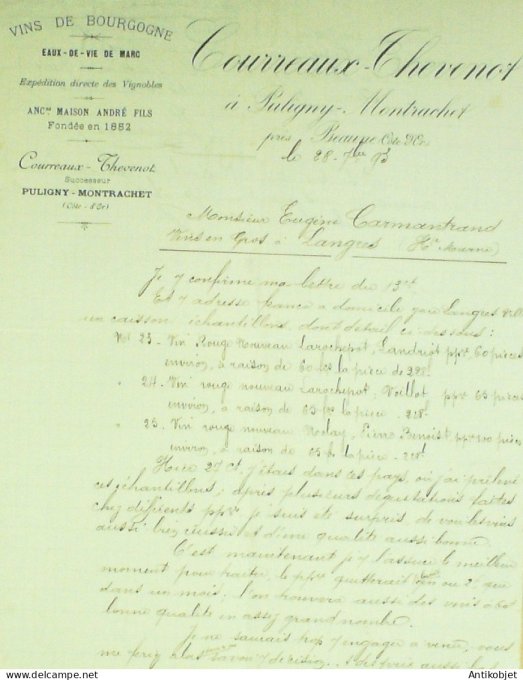 VINS DE BOURGOGNE
EAUX-DE-VIE DE MARC
Expédition directe des Vignobles
ANCne MAISON ANDRÉ FILS
Fondée en 1882
Courreaux-Thevenot
Successeur
PULIGNY-MONTRACHET
(Côte-d'Or)
Courreaux-Thevenot
à Puligny-Montrachet
près Beaune Côte d'Or
le 28
Monsieur Eugène Carmantrand
Vins en Gros à Langres (Hte Marne)
Je v confirme ma lettre du 13ct
Et v adresse franco à domicile gare Langres
un caisson échantillons, dont détail ci-dessous :
No 23. Vin Rouge Nouveau Larochepot, Landriot ppre 60 pièces
environ, à raison de la pièce de 228l
" 24. Vin rouge nouveau Larochepot, ppre 65 pièces
environ, à raison de 65 frs la pièce 228l
" 25. Vin rouge nouveau Pierre Benoist ppre 100 pièces
environ, à raison de la pièce 228l
Hier 27ct j'étais dans ces pays, où j'ai prélevé
ces échantillons ; après plusieurs dégustations faites
chez différents ppres, je suis été surpris de voir les vins
aussi bien réussis et d'une qualité aussi bonne.
C'est maintenant je v l'assure le meilleur
moment pour traiter, le ppre quitterait ou 2 que
dans un mois. l'on trouvera aussi des vins à 60
bonne qualité en assez grand nombre.
Je ne saurais trop v engager à venir, vous
me